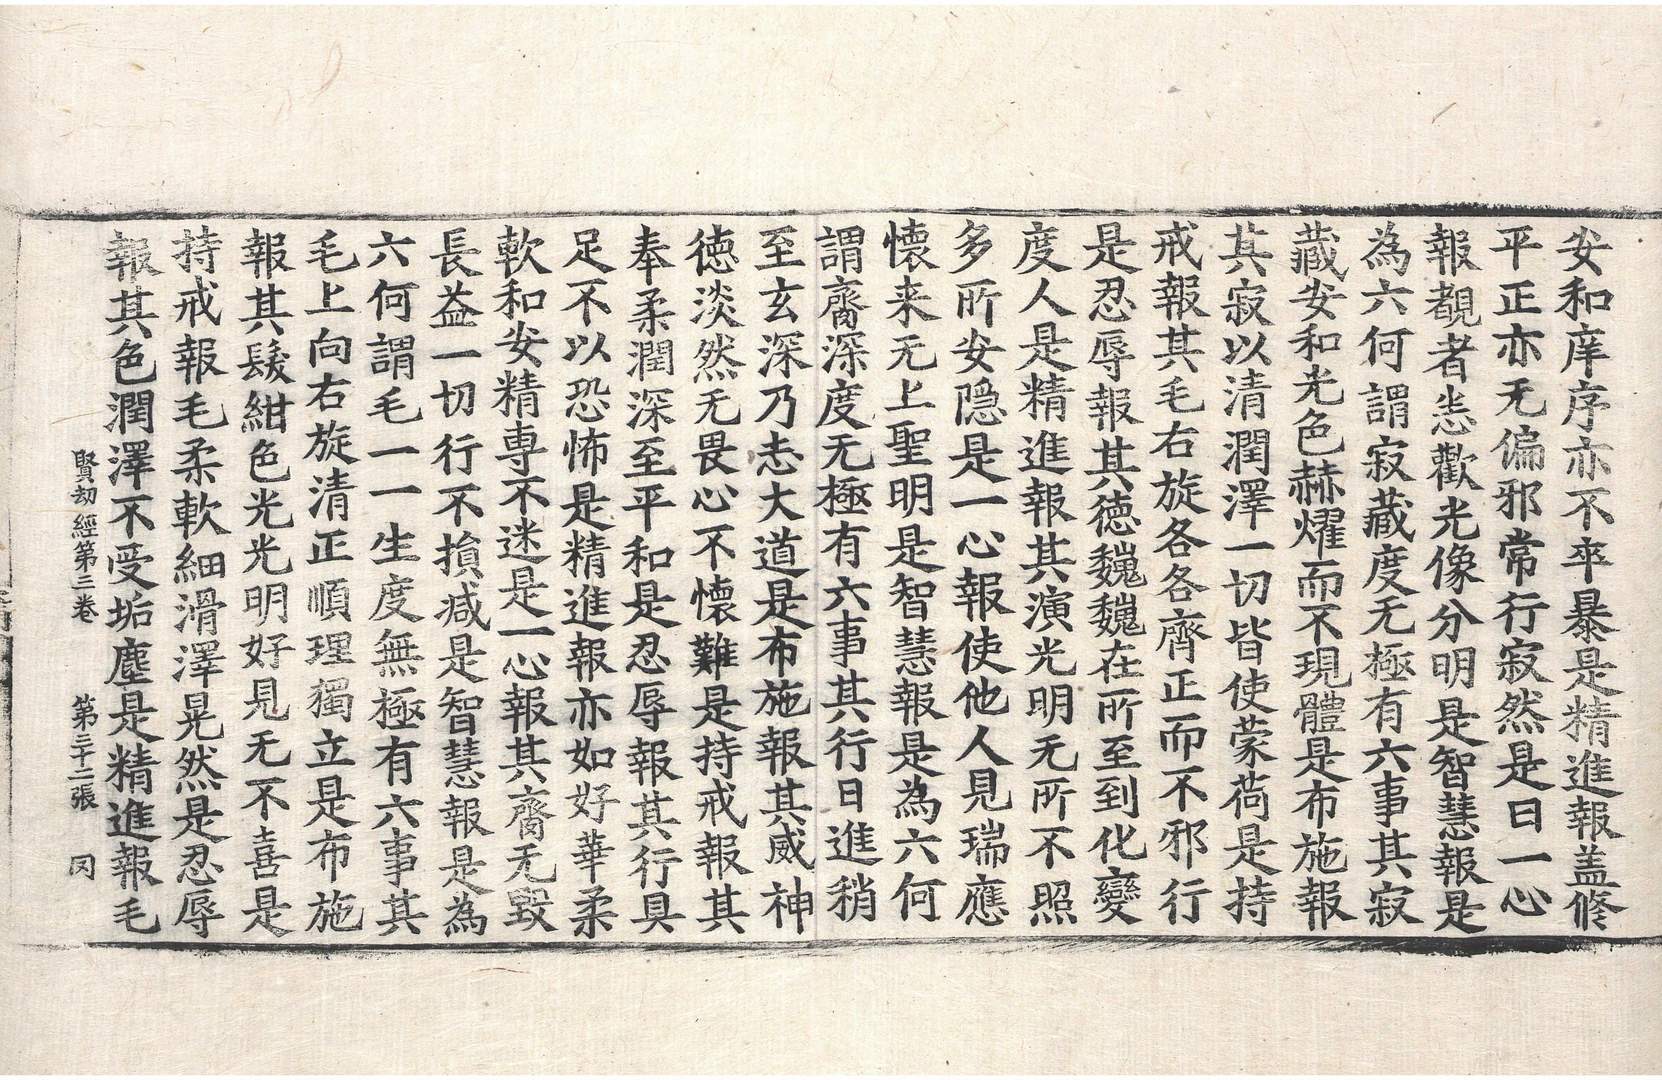 安和庠序亦不卒暴是精進報蓋修
平正亦无偏邪常行寂然是曰一心
報覩者恙歡光像分明是智慧報是
為六何謂寂藏度无極有六事其寂
藏安和光色赫燿而不現體是布施報
其寂以清潤澤一切皆使蒙荷是持
戒報其毛右旋各各齊正而不邪行
是忍辱報其德巍巍在所至到化變
度人是精進報其演光明无所不照
多所安隱是一心報使他人見瑞應
懷来无上聖明是智慧報是為六何
謂齎深度无極有六事其行日進稍
至玄深乃志大道是布施報其威神
德淡然无畏心不懷難是持戒報其
奉柔潤深至平和是忍辱報其行具
足不以恐怖是精進報亦如好華柔
軟和安精專不迷是一心報其齎无毀
長益一切行不損减是智慧報是為
六何謂毛一一生度無極有六事其
毛上向右旋清正順理獨立是布施
報其髮紺色光光明好見无不喜是
持戒報毛柔軟細滑澤晃然是忍辱
報其色潤澤不受垢塵是精進報毛
賢劫經第三卷 第三十二張